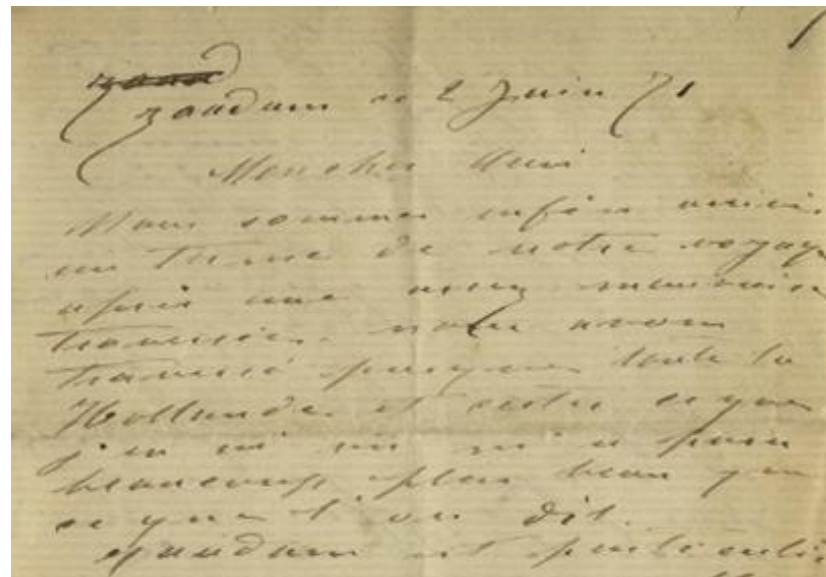 Zaandam ce 2 Juin 71
Mon cher Ami
Nous sommes enfin arrivés
au terme de notre voyage
après une assez mauvaise
traversée. nous avons
traversé presque toute la
Hollande et certes ce que
j'en ai vu m'a paru
beaucoup plus beau que
ce que l'on dit.
Zaandam est particuliè